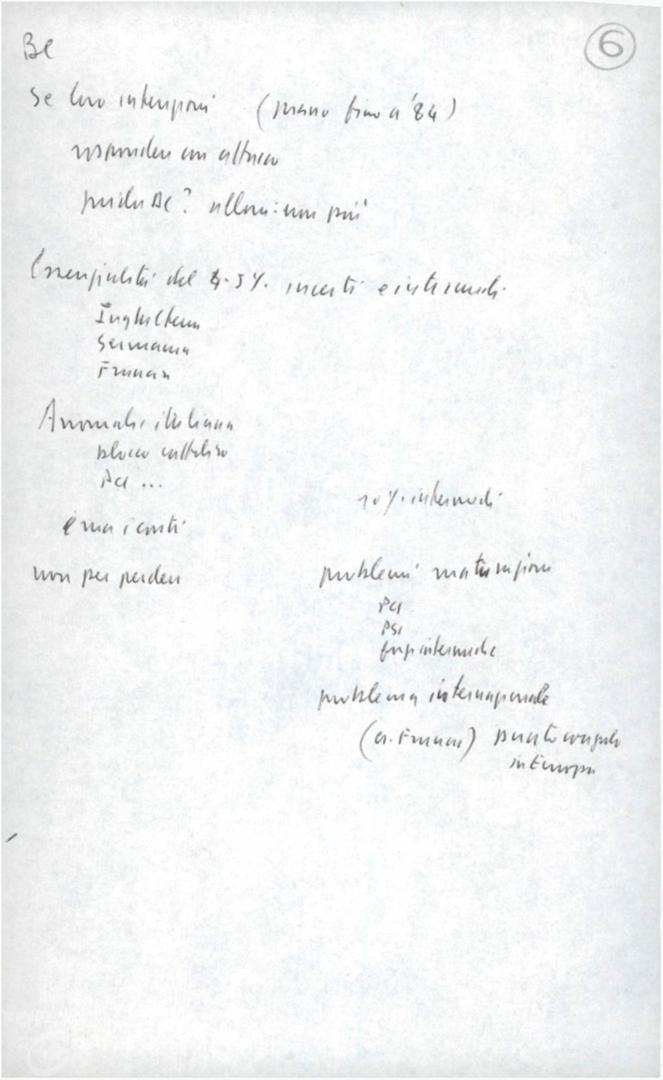 Be
6
Se loro intenzioni (piano fino a '84)
rispondere con attacco
perdu
 allora: non più
Essenzialità del 4-5%. incerti e intermedi.
Inghilterra
Germania
Francia
Anomalie italiana
blocco cattolico
Pci ...
10%. intermedi
e ma i conti
non per perdere
problemi maturazione
Pci
Psi
forze intermedie
problema internazionale
(cr. Francia)
in Europa